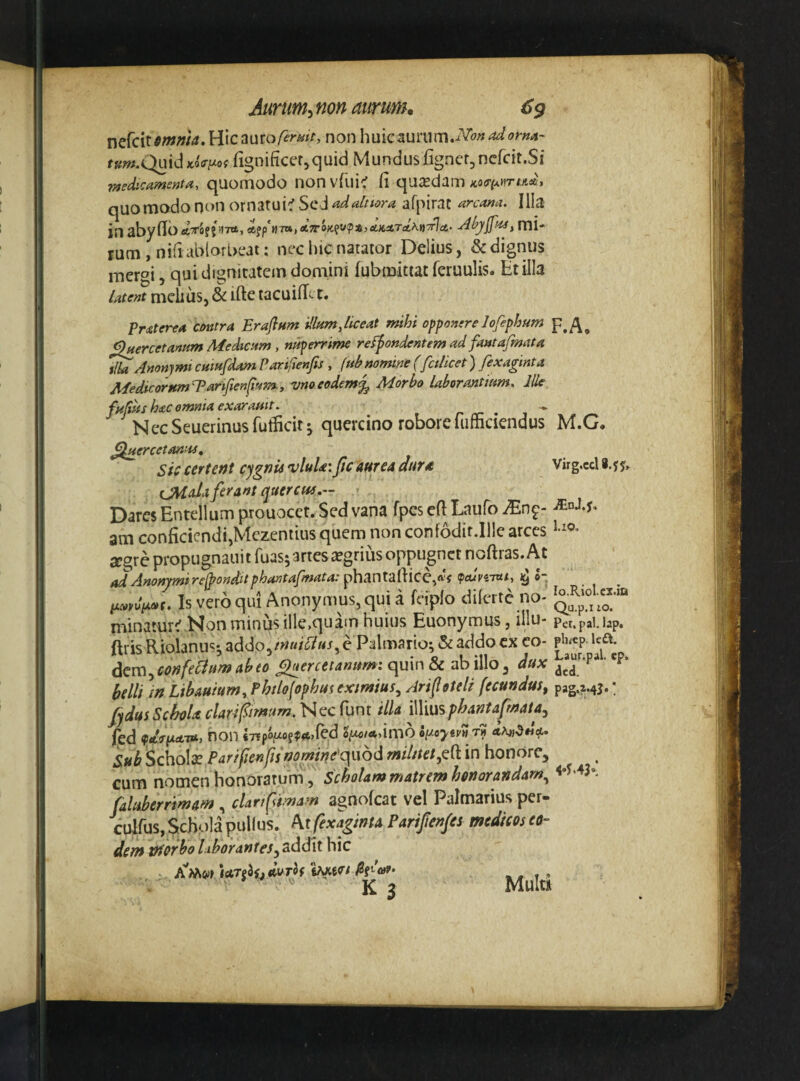 Aurum, non aurum. 69
nescit omnia. Hic auro feruit, non huic aurum. Non ad orna-
tum. Quid κόσμος significet, quid Mundus signet, nescit. Si
medicamenta, quomodo non vsui? si quædam κοσμητικὰ,
quomodo non ornatui? Sed ad altiora aspirat arcana. Illa
in abysso ἀπόῤῥητα, ἄῤῥητα, ἀπόκρυφα, ἀκατάληπτα. Abyssus, mi-
rum, nisi absorbeat: nec hic natator Delius, & dignus
mergi, qui dignitatem domini submittat seruulis. Et illa
latent melius, & iste tacuisset.
Præterea contra Erastum illum, liceat mihi opponere Iosephum F. A.
Quercetanum Medicum, nuperrime respondentem ad fantasmata
illa Anonymi cuiusdam Parisiensis, sub nomine (scilicet) sexaginta
Medicorum Parisiensium, vno eodemq́ Morbo laborantium. Ille
fusius hæc omnia exarauit.
Nec Seuerinus sufficit; quercino robore sufficiendus M.G.
Quercetanus.
Sic certent cygnis vlulæ: sic aurea duræ Virg. ecl 8.55.
Mala ferant quercus.--
Dares Entellum prouocet. Sed vana spes est Lauso Æneę- Æn.l.5.
am conficiendi, Mezentius quem non confodit. Ille arces l.10.
ægrè propugnauit suas; artes ægrius oppugnet nostras. At
ad Anonymi respondit phantasmata: phantasticè, ὡς φαίνεται, ἢ ὁ-
μωνύμως. Is verò qui Anonymus, qui à seipso disertè no- Io.Riol.ex.in
Qu.p.110.
minatur? Non minùs ille, quàm huius Euonymus, illu- Per. pal. lap.
stris Riolanus; addo, inuictus, è Palmario; & addo ex eo- ph. ep. lect.
dem, confectum ab eo Quercetanum: quin & ab illo, dux Laur. pal. ep.
ded.
belli in Libauium, Philosophus eximius, Aristoteli secundus, pag.2.43.
sydus Scholæ clarissimum. Nec sunt illa illius phantasmata,
sed φάσματα, non ἑτερόμορφα, sed ὅμοια, imò ὁμογενῆ τῇ ἀληθείᾳ.
Sub Scholæ Parisiensis nomine quòd militet, est in honore,
cum nomen honoratum, Scholam matrem honorandam, 4.5.43.
saluberrimam, clarissimam agnoscat vel Palmarius per-
culsus, Schola pullus. At sexaginta Parisienses medicos eo-
dem morbo laborantes, addit hic
Ἄλλων ἰατρὸς, αὐτὸς ἕλκεσι βρύων.
K 3 Multi